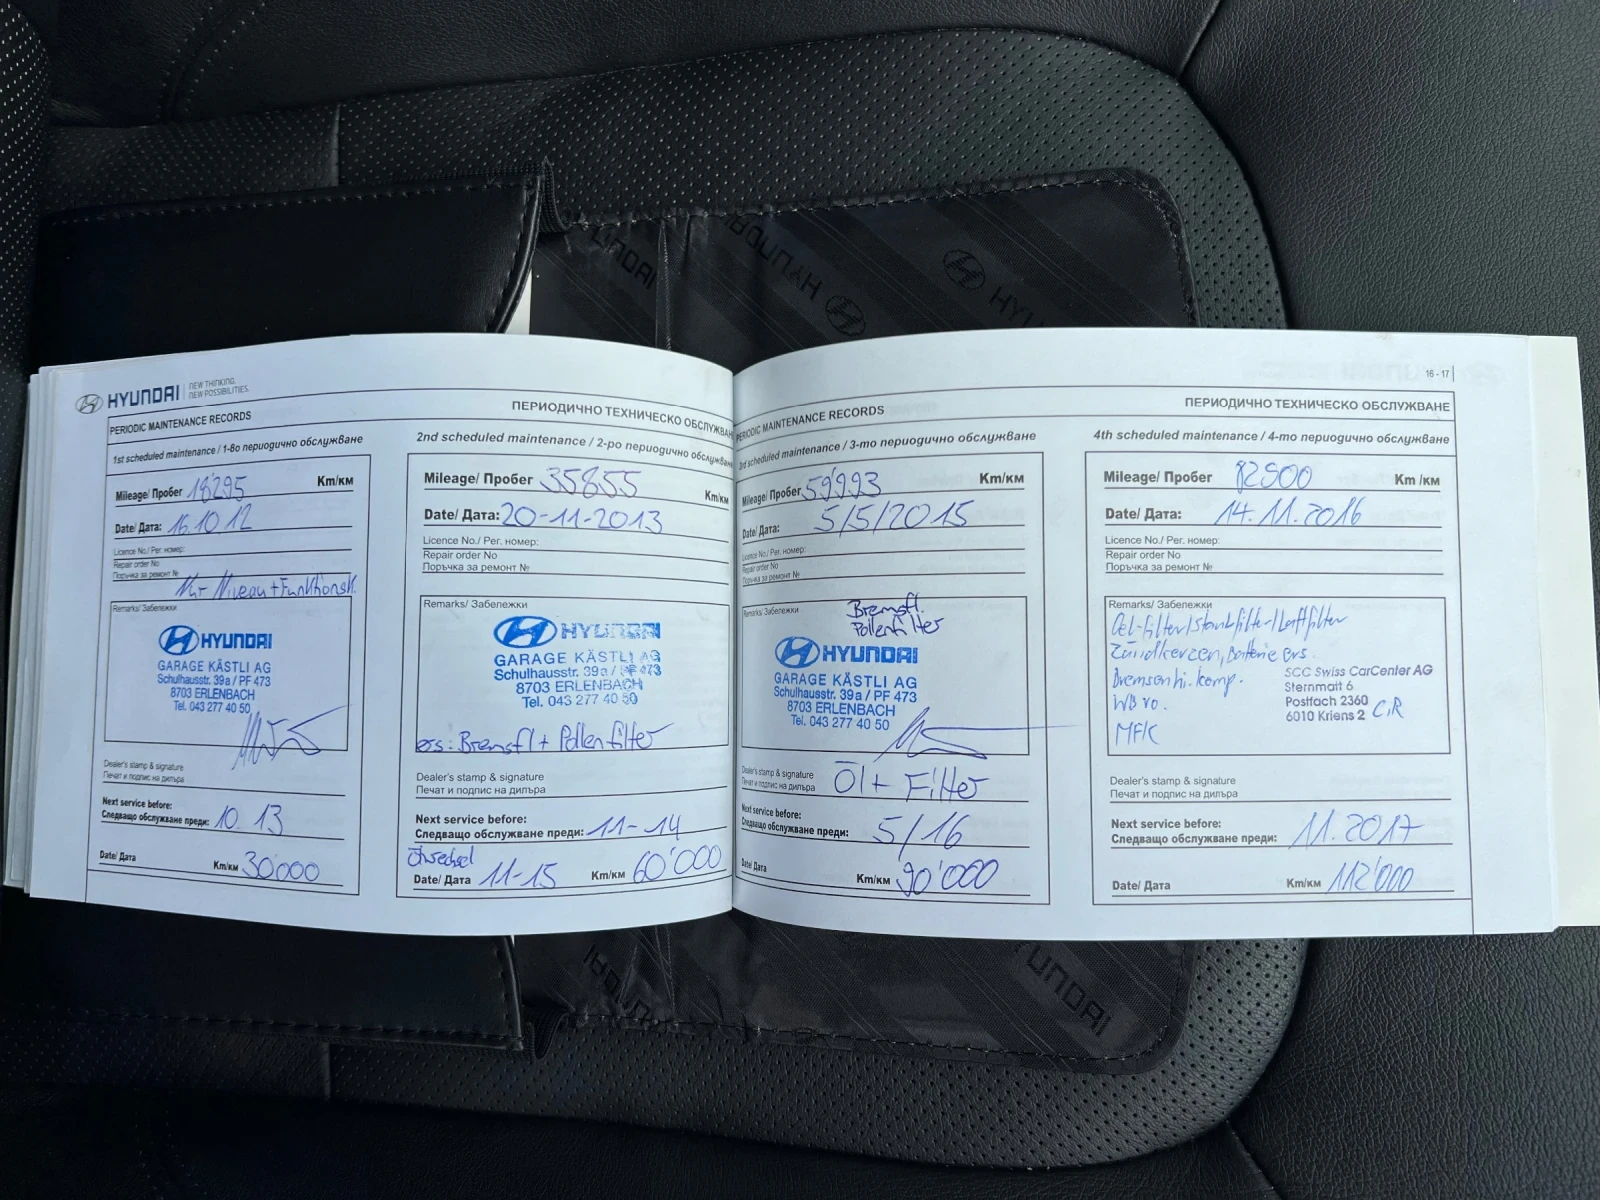 HYUNDAI | NEW THINKING. NEW POSSIBILITIES.
PERIODIC MAINTENANCE RECORDS
ПЕРИОДИЧНО ТЕХНИЧЕСКО ОБСЛУЖВАН
1st scheduled maintenance / 1-во периодично обслужване
Mileage/ Пробег 18'295 Km/км
Date/ Дата: 16.10.12
Licence No./ Рег. номер:
Repair order No
Поръчка за ремонт №
Nur Niveau + Funktionsk.
Remarks/ Забележки
HYUNDAI
GARAGE KÄSTLI AG
Schulhausstr. 39a / PF 473
8703 ERLENBACH
Tel. 043 277 40 50
Dealer's stamp & signature
Печат и подпис на дилъра
Next service before:
Следващо обслужване преди: 10.13
Date/ Дата Km/км 30'000
2nd scheduled maintenance / 2-ро периодично обслужване
Mileage/ Пробег 35855 Km/км
Date/ Дата: 20-11-2013
Licence No./ Рег. номер:
Repair order No
Поръчка за ремонт №
Remarks/ Забележки
HYUNDAI
GARAGE KÄSTLI AG
Schulhausstr. 39a / PF 473
8703 ERLENBACH
Tel. 043 277 40 50
ers: Bremsfl + Pollenfilter
Dealer's stamp & signature
Печат и подпис на дилъра
Next service before:
Следващо обслужване преди: 11-14
Ölwechsel
Date/ Дата 11-15 Km/км 60'000
16 - 17
PERIODIC MAINTENANCE RECORDS
ПЕРИОДИЧНО ТЕХНИЧЕСКО ОБСЛУЖВАНЕ
3rd scheduled maintenance / 3-то периодично обслужване
Mileage/ Пробег 59'993 Km/км
Date/ Дата: 5/5/2015
Licence No./ Рег. номер:
Repair order No
Поръчка за ремонт №
Remarks/ Забележки
Bremsfl.
Pollenfilter
HYUNDAI
GARAGE KÄSTLI AG
Schulhausstr. 39a / PF 473
8703 ERLENBACH
Tel. 043 277 40 50
Dealer's stamp & signature
Печат и подпис на дилъра
Öl + Filter
Next service before:
Следващо обслужване преди: 5/16
Date/ Дата Km/км 90'000
4th scheduled maintenance / 4-то периодично обслужване
Mileage/ Пробег 82500 Km /км
Date/ Дата: 14.11.2016
Licence No./ Рег. номер:
Repair order No
Поръчка за ремонт №
Remarks/ Забележки
Oel-filter/Staubfilter/Luftfilter
Zündkerzen, Batterie ers.
Bremsen hi. komp.
WB vo.
MFK
SCC Swiss CarCenter AG
Sternmatt 6
Postfach 2360
6010 Kriens 2
Dealer's stamp & signature
Печат и подпис на дилъра
Next service before:
Следващо обслужване преди: 11.2017
Date/ Дата Km/км 112'000
HYUNDAI
HYUNDAI
HYUNDAI